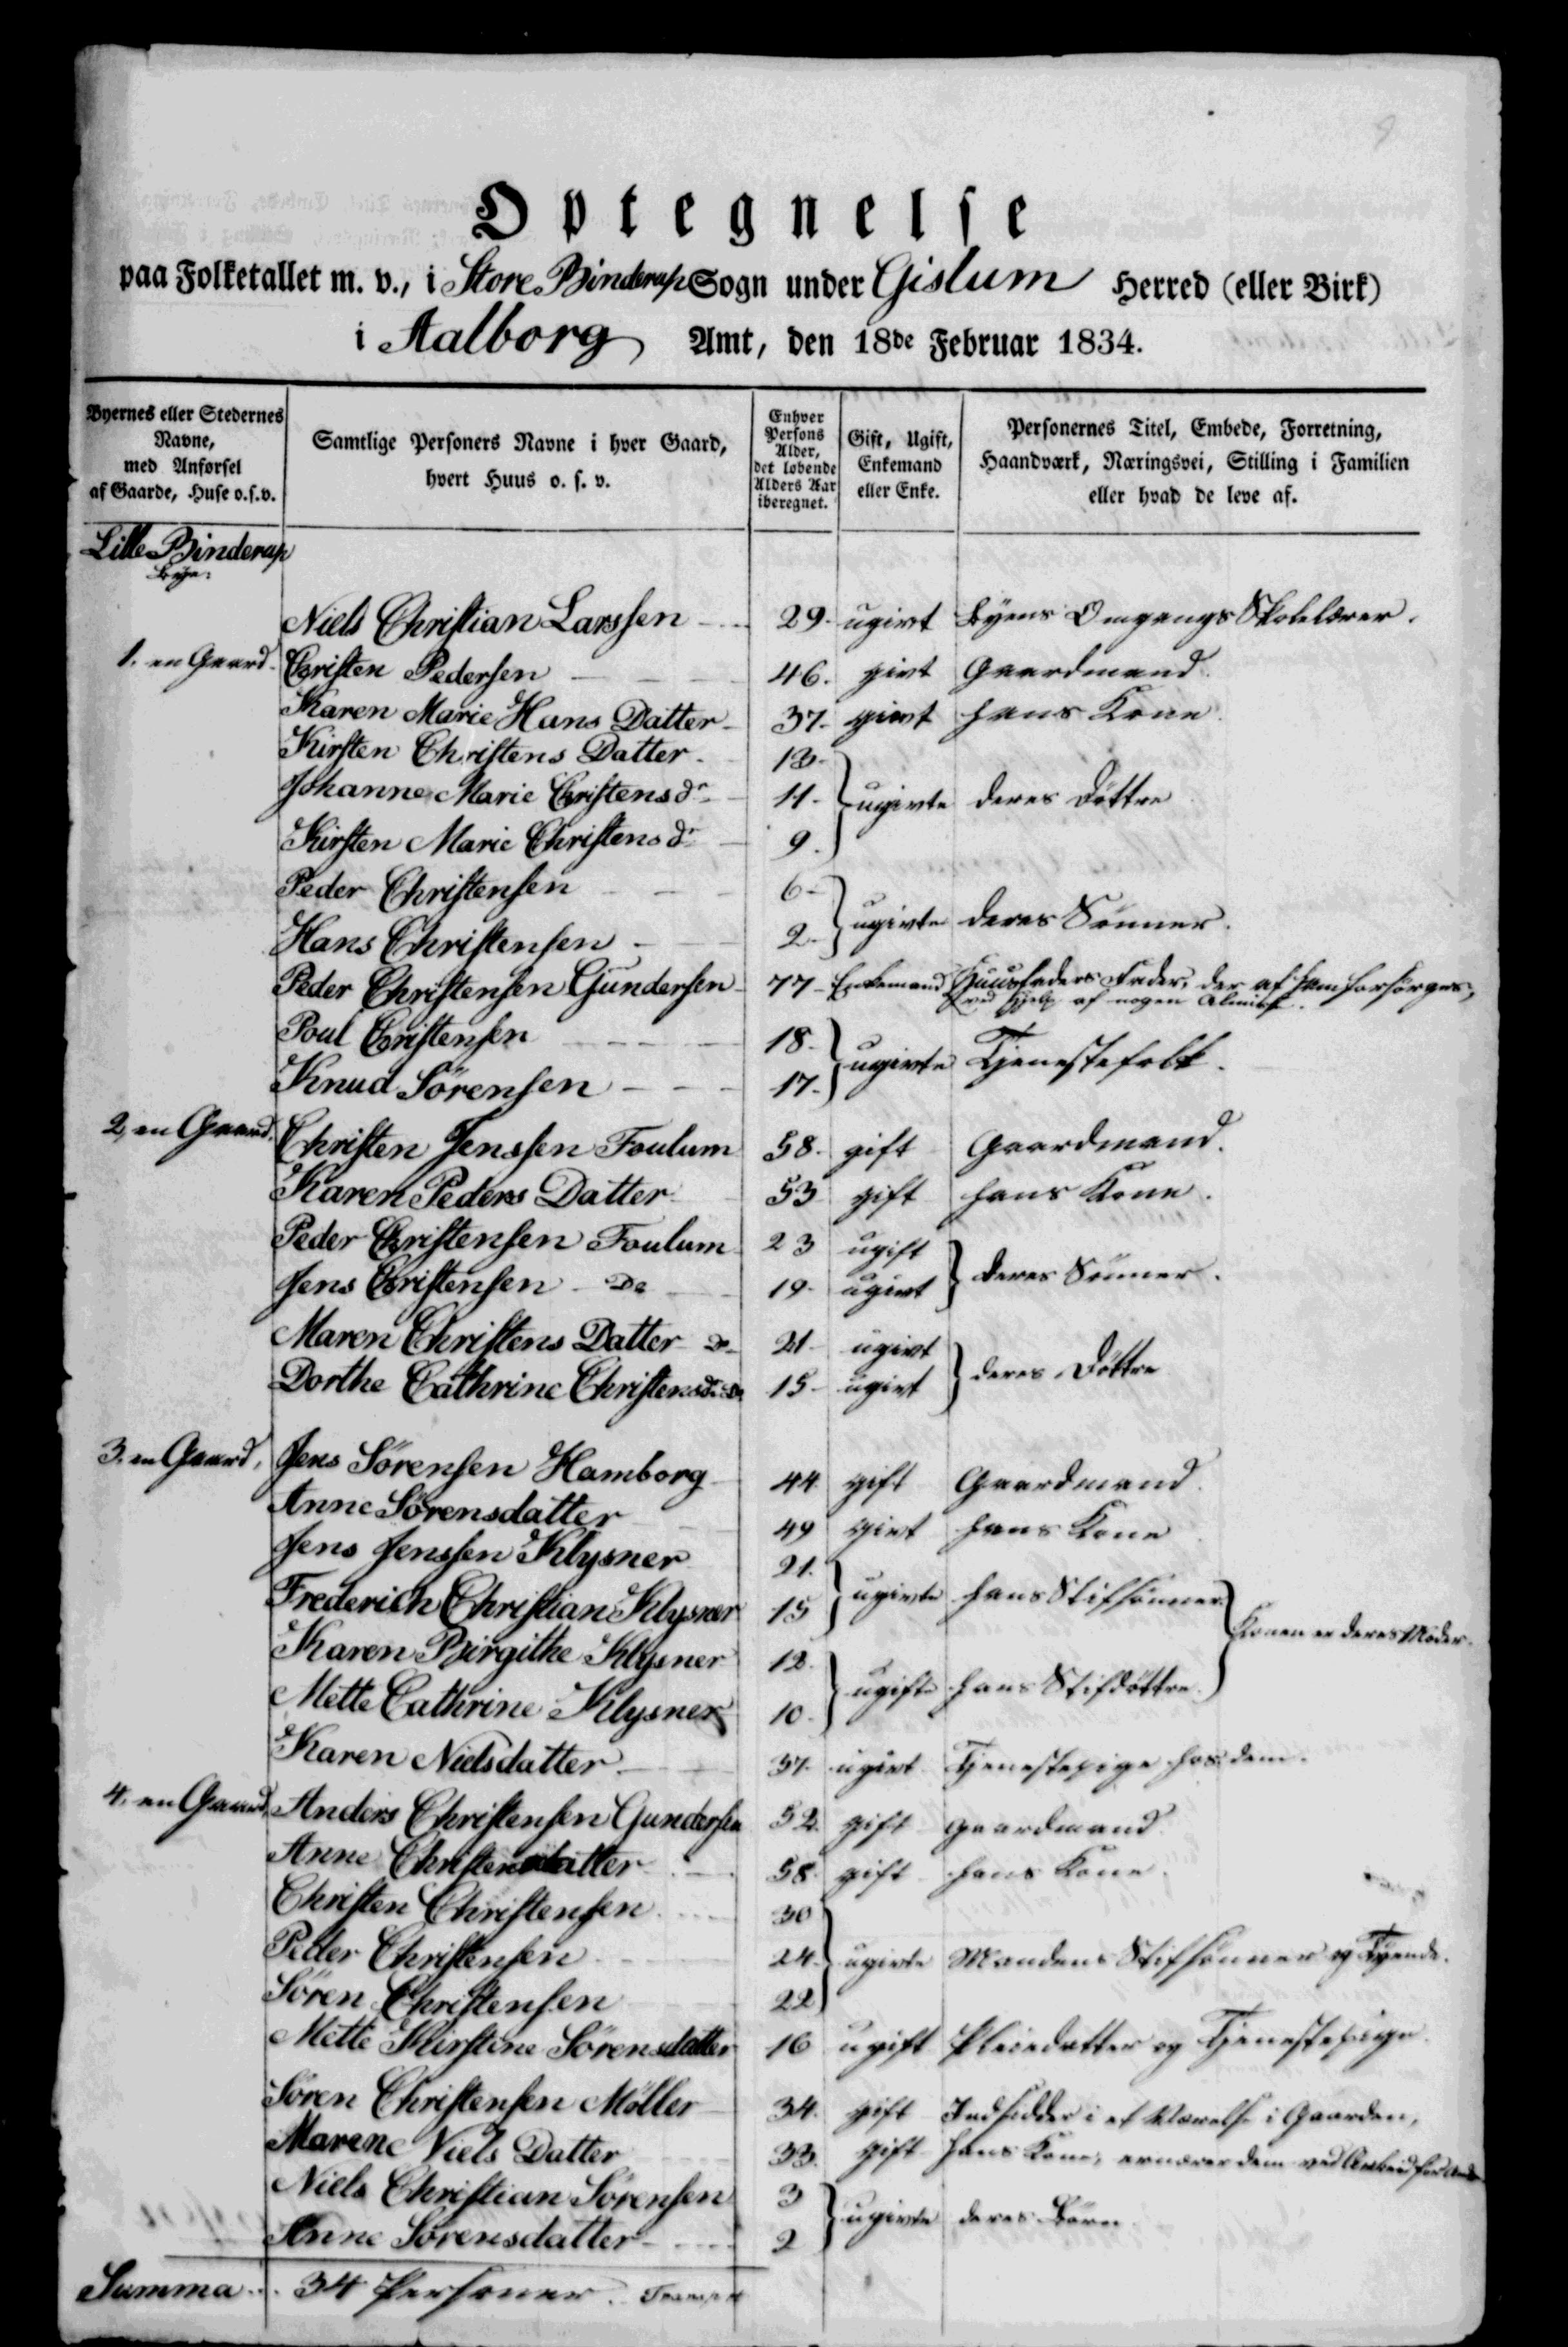 Optegnelse
paa Folketallet m. v., i Store Binderup Sogn under Gislum Herred (eller Birk)
i Aalborg Amt, den 18de Februar 1834.
Byernes eller Stedernes Navne, med Anførsel af Gaarde, Huse o.s.v.
Samtlige Personers Navne i hver Gaard, hvert Huus o. s. v.
Enhver Persons Alder, det løbende Alders Aar iberegnet.
Gift, Ugift, Enkemand eller Enke.
Personernes Titel, Embede, Forretning, Haandværk, Næringsvei, Stilling i Familien eller hvad de leve af.
Lille Binderup
Bye.
Niels Christian Larssen 29. ugivt Byens Omgangs Skolelærer.
1. en Gaard. Christen Pedersen 46. givt Gaardmand.
Karen Marie Hans Datter 37. givt hans Kone.
Kirsten Christens Datter 13.
Johanne Marie Christens dr 11. ugivte deres Döttre
Kirsten Marie Christens dr 9.
Peder Christensen 6
Hans Christensen 2. ugivte deres Sönner.
Peder Christensen Gundersen 77 Enkemand Huusfaders Fader, der af ham forsörges,
ved hjelp af nogen Almisse.
Poul Christensen 18.
Knud Sörensen 17. ugivte Tjenestefolk.
2, en Gaard. Christen Jenssen Foulum 58. gift Gaardmand.
Karen Peders Datter 53 gift hans Kone.
Peder Christensen Foulum 23 ugift
Jens Christensen Do 19. ugivt deres Sönner.
Maren Christens Datter Do 21 ugivt
Dorthe Cathrine Christensdr. Do 15 ugivt deres Döttre
3. en Gaard, Jens Sörensen Hamborg 44 gift Gaardmand.
Anne Sörensdatter 49 givt hans Kone
Jens Jenssen Klysner 21.
Frederich Christian Klysner 15 ugivte hans Stifsönner
Konen er deres Moder.
Karen Birgithe Klysner 12.
Mette Cathrine Klysner 10. ugifte hans Stifdöttre.
Karen Nielsdatter 37. ugivt Tjenestepige hos dem.
4. en Gaard, Anders Christensen Gundersen 52. gift gaardmand
Anne Christensdatter 58. gift hans Kone.
Christen Christensen 30
Peder Christensen 24. ugivte Mandens Stifsönner og Tyende.
Sören Christensen 22
Mette Kirstine Sörensdatter 16 ugift Pleiedatter og Tjenestepige.
Sören Christensen Möller 34. gift Indsidder i et Værelse i Gaarden,
Marene Niels Datter 33. gift hans Kone, ernærer dem ved Arbeid for Andre
Niels Christian Sörensen 3
Anne Sörensdatter 2 ugivte deres Börn
Summa 34 Personer.